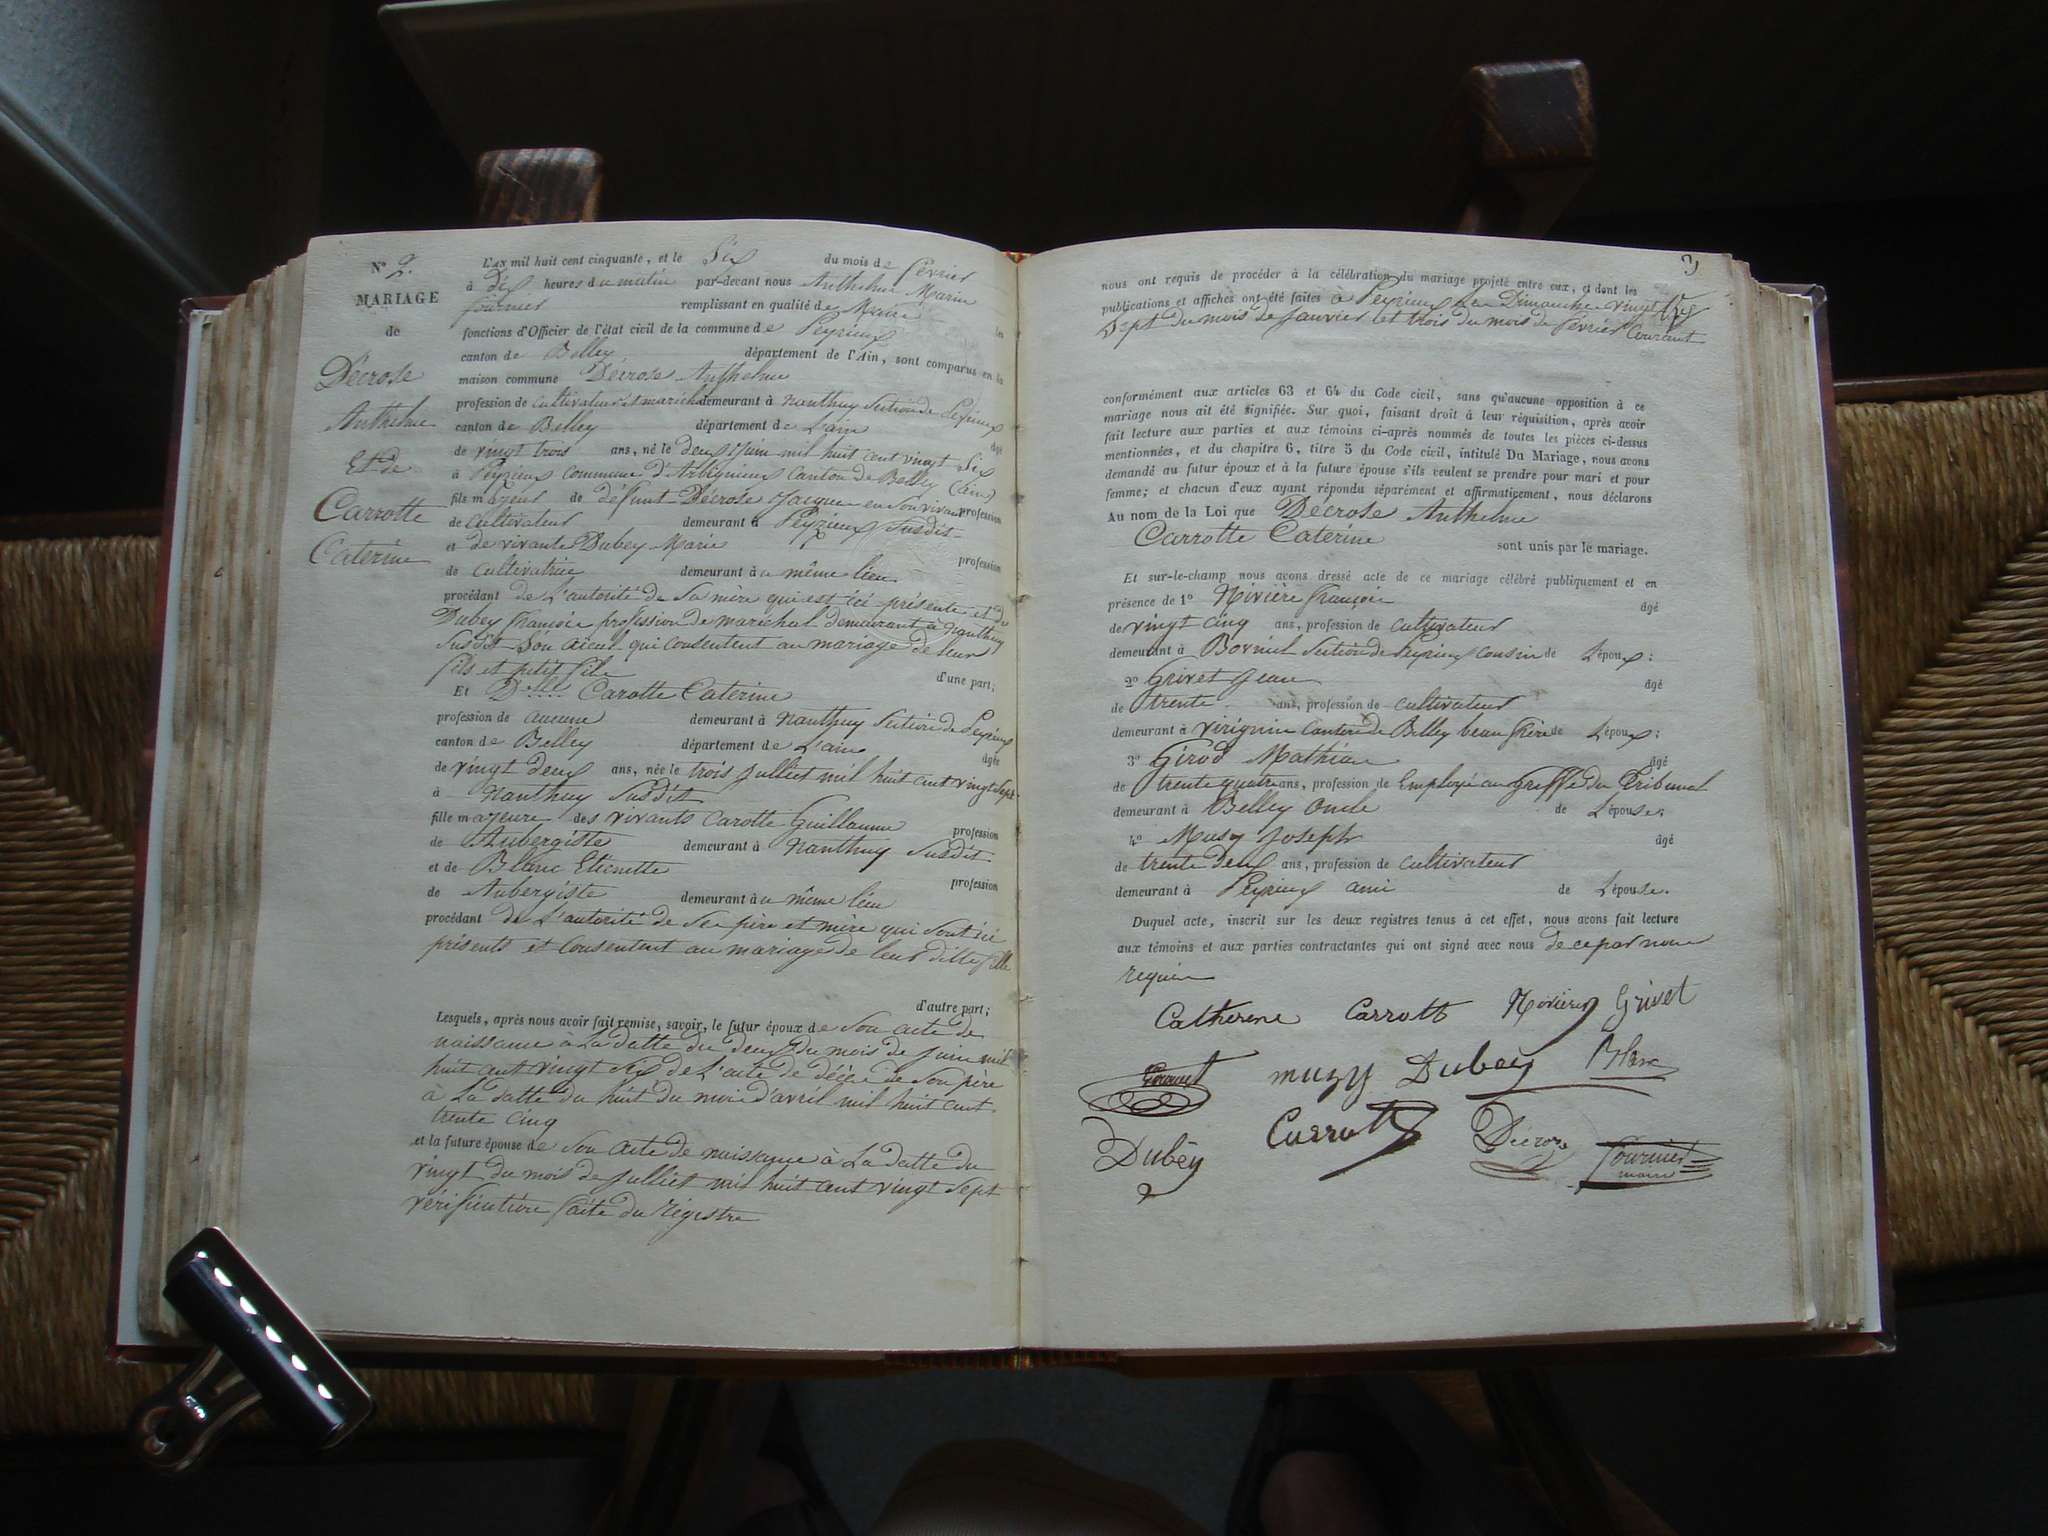 N° 2.
MARIAGE
de
Décrose
Anthelme
Et de
Carrotte
Caterine
L'AN mil huit cent cinquante, et le Six du mois de février
à dix heures du matin par-devant nous Anthelme Marin
fournier remplissant en qualité de Maire les
fonctions d'Officier de l'état civil de la commune de Peyrieux
canton de Belley département de l'Ain, sont comparus en la
maison commune Décrose Anthelme
profession de cultivateur et marechal demeurant à nanthuy Section de Peyrieux
canton de Belley département de L'ain âgé
de vingt trois ans, né le deux juin mil huit cent vingt Six
à Peyzieux commune d'Arbignieux canton de Belley (ain)
fils majeur de défunt Décrose Jacque en son vivant profession
de cultivateur demeurant à Peyzieux Susdit
et de vivante Dubey Marie profession
de cultivatrice demeurant au même lieu
procédant de L'autorité de Sa mère qui est ici présente et de
Dubey françois profession de maréchal demeurant à nanthuy
Susdit Son aieul qui consentent au mariage de leur
fils et petit fils d'une part;
Et Delle Carotte Caterine
profession de aucune demeurant à nanthuy Section de Peyrieux
canton de Belley département de L'ain âgée
de vingt deux ans, née le trois Julliet mil huit cent vingt Sept
à nanthuy Susdit
fille majeure des vivants Carotte Guillaume profession
de Aubergiste demeurant à nanthuy Susdit
et de Blanc Etienette profession
de Aubergiste demeurant au même lieu
procédant de L'autorité de Ses père et mère qui Sont ici
présents et Consentent au mariage de leur ditte fille
d'autre part;
Lesquels, après nous avoir fait remise, savoir, le futur époux de Son acte de
naissance à La datte du deux du mois de Juin mil
huit cent vingt Six de L'acte de décès de Son père
à La datte du huit du mois d'avril mil huit cent
trente cinq
et la future épouse de Son acte de naissance à La datte du
vingt du mois de Julliet mil huit cent vingt Sept
vérification faite du régistre
3
nous ont requis de procéder à la célébration du mariage projeté entre eux, et dont les
publications et affiches ont été faites à Peyrieux Les Dimanche vingt
Sept du mois de Janvier et trois du mois de février Courant
conformément aux articles 63 et 64 du Code civil, sans qu'aucune opposition à ce
mariage nous ait été signifiée. Sur quoi, faisant droit à leur réquisition, après avoir
fait lecture aux parties et aux témoins ci-après nommés de toutes les pièces ci-dessus
mentionnées, et du chapitre 6, titre 5 du Code civil, intitulé Du Mariage, nous avons
demandé au futur époux et à la future épouse s'ils veulent se prendre pour mari et pour
femme; et chacun d'eux ayant répondu séparément et affirmativement, nous déclarons
Au nom de la Loi que Décrose Anthelme
Carrotte Caterine sont unis par le mariage.
Et sur-le-champ nous avons dressé acte de ce mariage célébré publiquement et en
présence de 1° Rivière françois âgé
de vingt cinq ans, profession de cultivateur
demeurant à Bovinel Section de Peyrieux cousin de L'époux;
2° Grivet Jean âgé
de trente ans, profession de cultivateur
demeurant à virignin canton de Belley beau frère de L'époux;
3° Girod Mathieu âgé
de trente quatre ans, profession de Employé au greffe du Tribunal
demeurant à Belley Oncle de L'épouse.
4° Musy Joseph âgé
de trente deux ans, profession de cultivateur
demeurant à Peyrieux ami de L'épouse.
Duquel acte, inscrit sur les deux registres tenus à cet effet, nous avons fait lecture
aux témoins et aux parties contractantes qui ont signé avec nous de ce par nous
requis
Catherine Carrott Rivière Grivet
muzy Dubey Blanc
Dubey Carrott Décrose fournier
maire